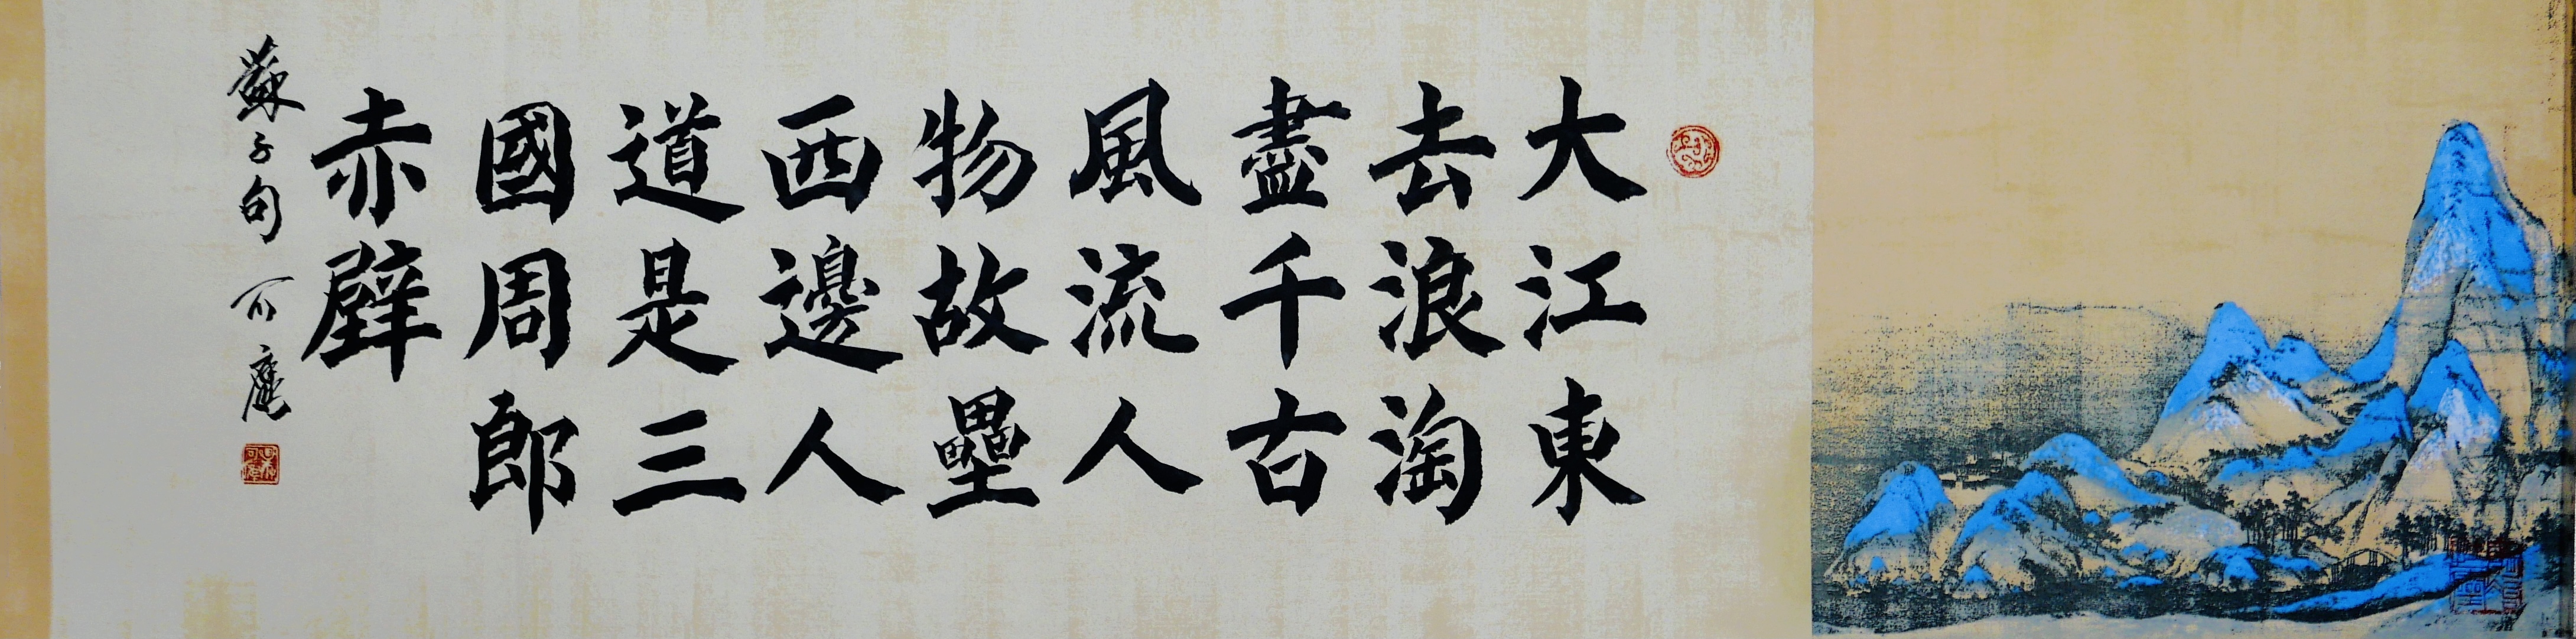 大江東
去浪淘
盡千古
風流人
物故壘
西邊人
道是三
國周郎
赤壁
蘇子句 可庵